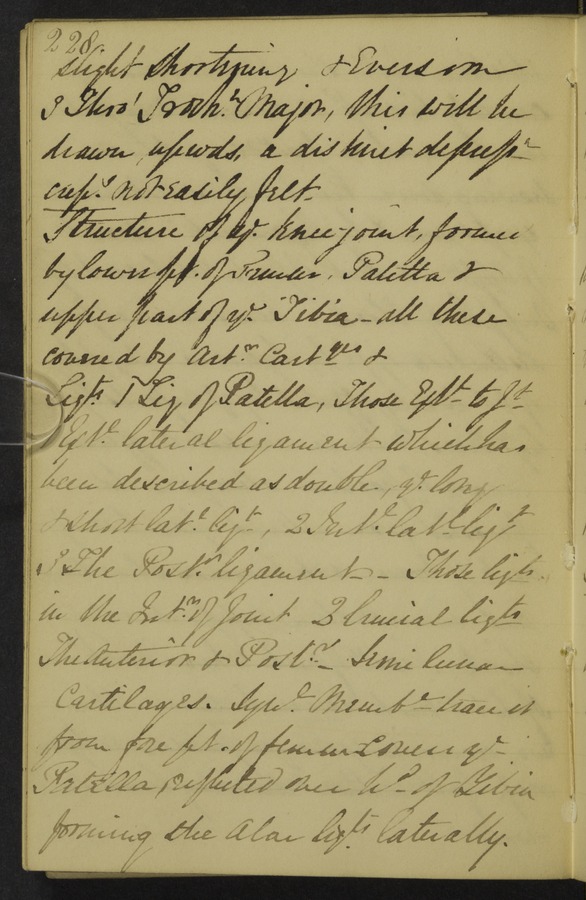 228
slight shortening & Eversion
3 Thro' Troch.r Major, this will be
drawn upwds. a distinct depress.n
not easily felt
Structure of ye. Knee joint, formed
by lower pt. of Femur, Patella &
upper part of ye. Tibia - all these
covered by Art.r Cart.ges &
Ligts. 1 Lig of Patella, Those Ext.l to Jt
Ext.l lateral ligament which has
been described as double, ye. long
& short lat.l ligt, 2 Int.l lat.l ligt
3 The Post.r ligament - Those ligts.
in the Int.r of Joint 2 Crucial ligts
The Anterior & Post.r - Semilunar
Cartilages. Syn.l Memb.e trace it
from fore pt. of femur Covers ye
Patella, reflected over hd of Tibia
forming the alar ligts laterally.